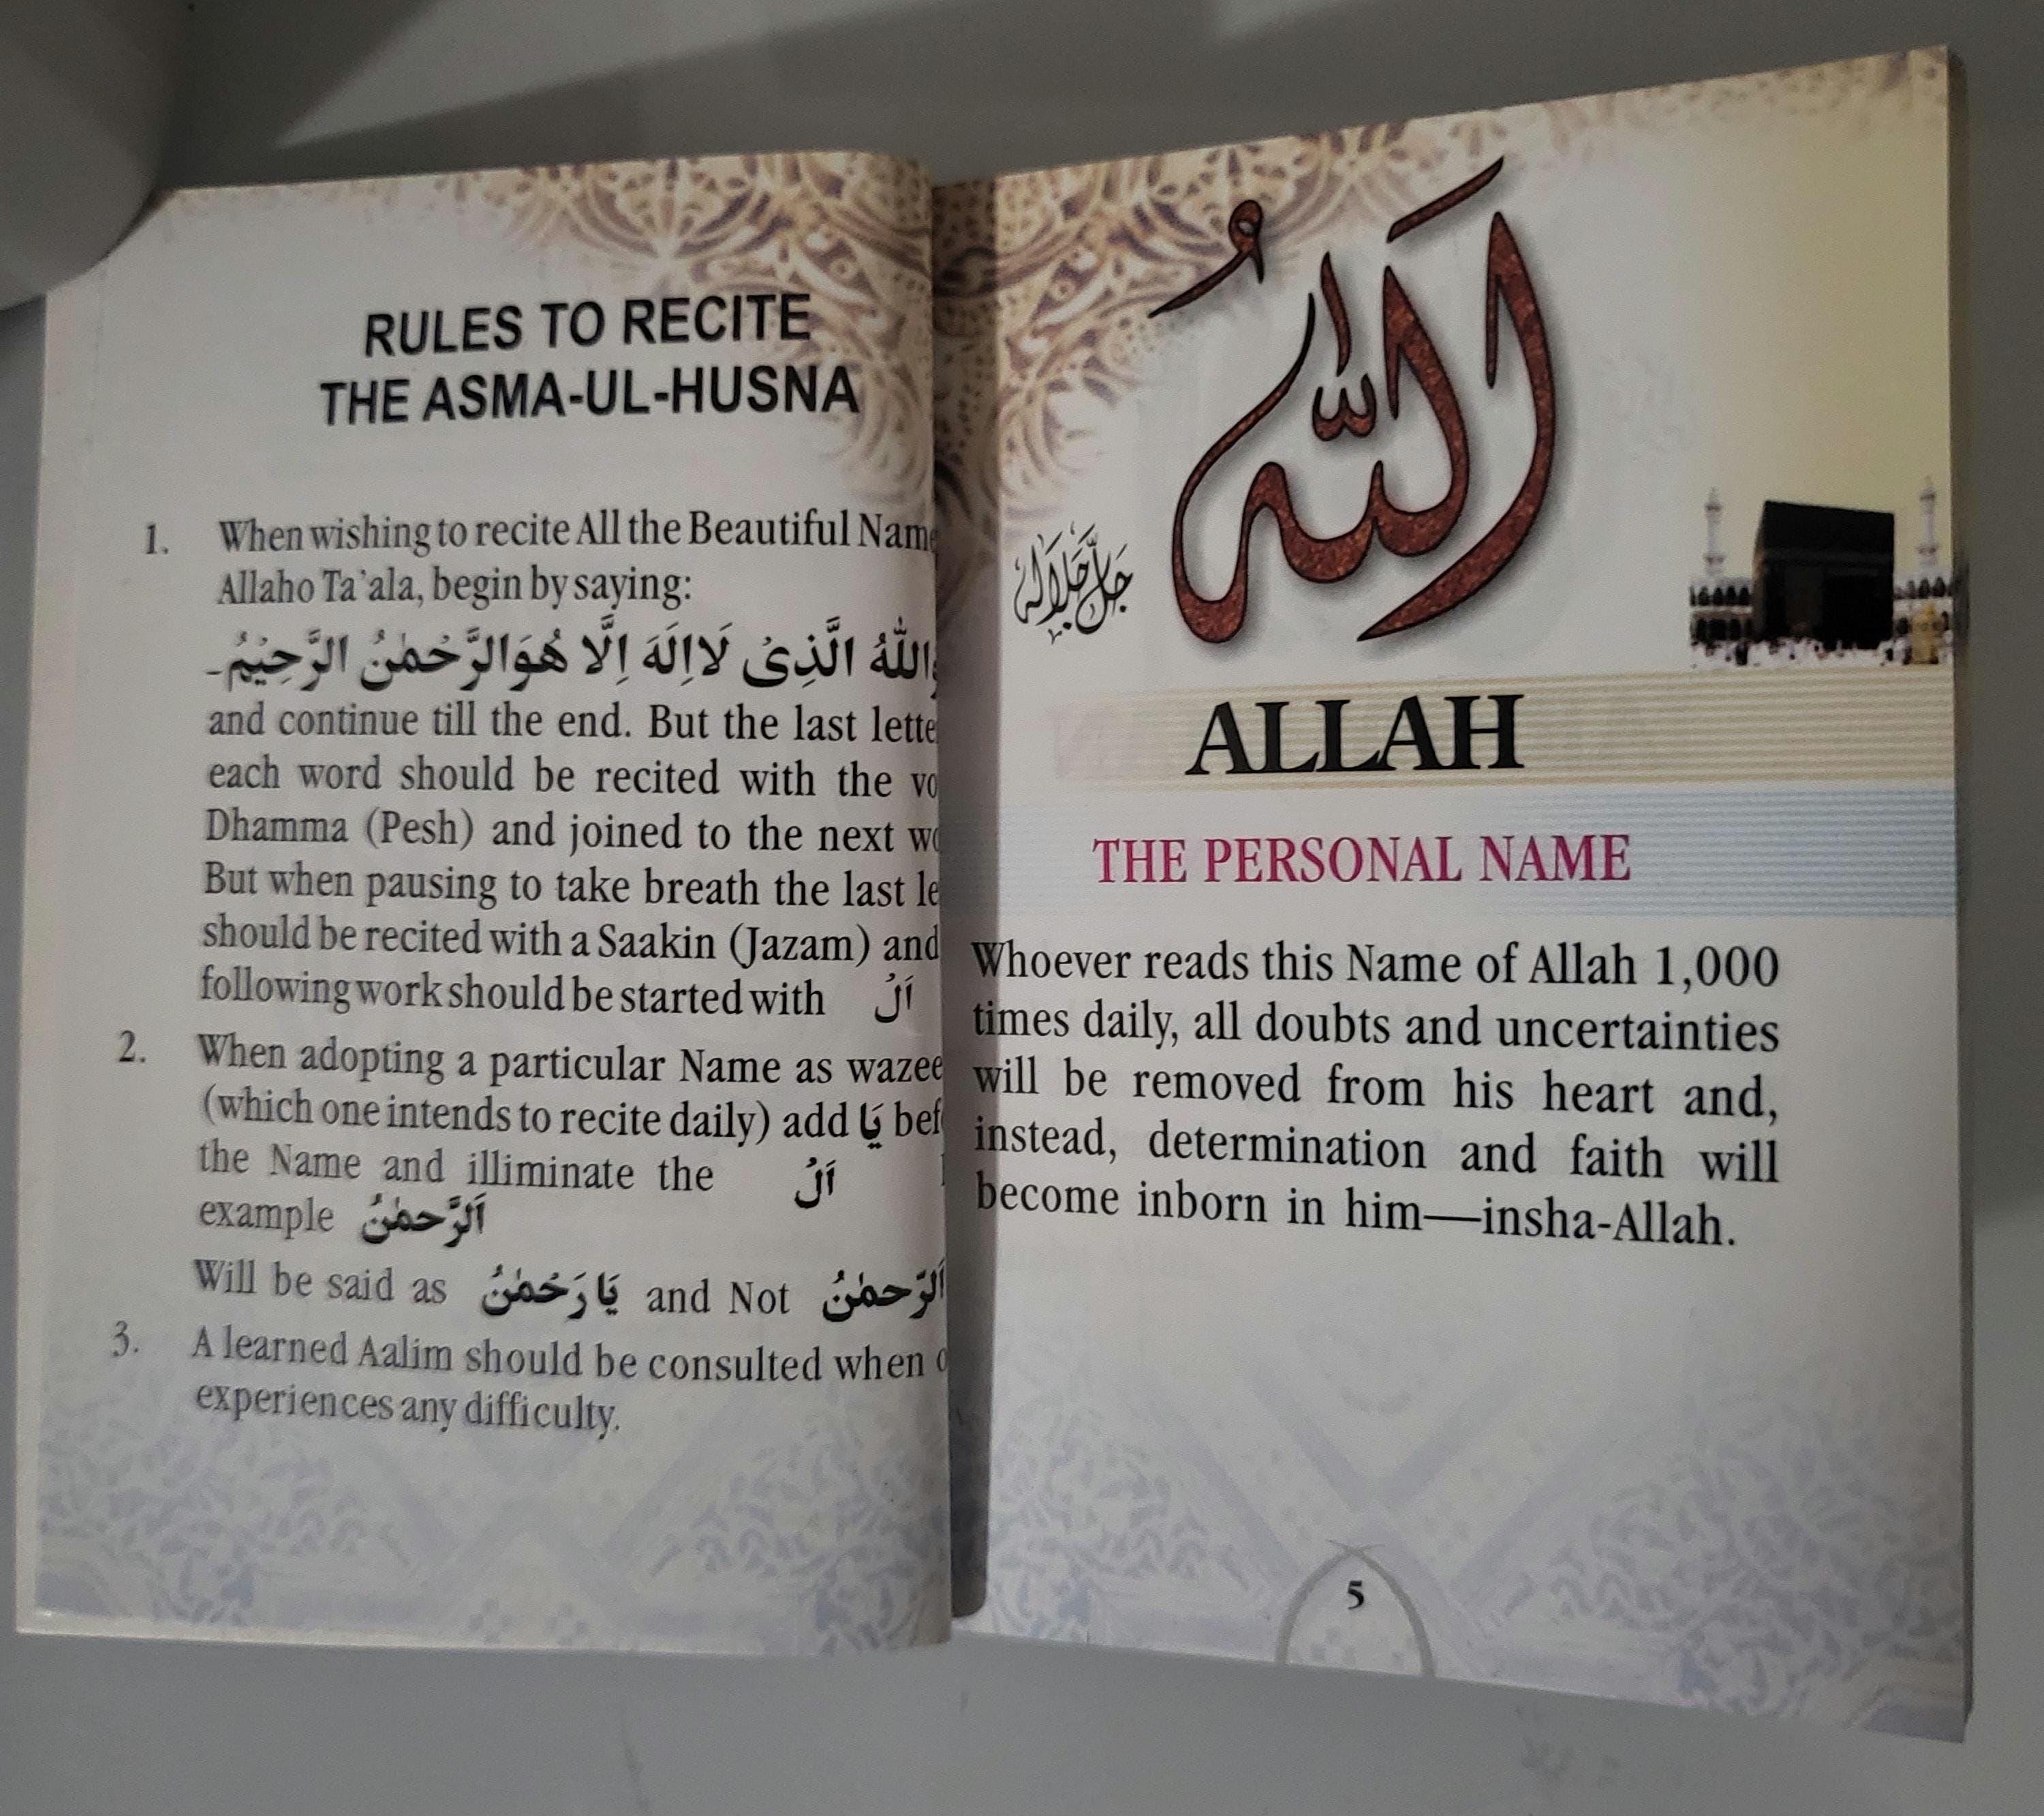 RULES TO RECITE
THE ASMA-UL-HUSNA
1. When wishing to recite All the Beautiful
Allaho Ta'ala, begin by saying:
اللّٰهُ الَّذِىْ لَااِلٰهَ اِلَّا هُوَالرَّحْمٰنُ الرَّحِيْمُ۔
and continue till the end. But the last
each word should be recited with the
Dhamma (Pesh) and joined to the next
But when pausing to take breath the last
should be recited with a Saakin (Jazam) and
following work should be started with اَلْ
2. When adopting a particular Name as
(which one intends to recite daily) add يَا
the Name and illiminate the اَلْ
example اَلرَّحمٰنُ
Will be said as يَا رَحْمٰنُ and Not اَلرَّحمٰنُ
3. A learned Aalim should be consulted when
experiences any difficulty.
اَللّٰهُ
جَلَّ جَلَالَهُ
ALLAH
THE PERSONAL NAME
Whoever reads this Name of Allah 1,000
times daily, all doubts and uncertainties
will be removed from his heart and,
instead, determination and faith will
become inborn in him—insha-Allah.
5